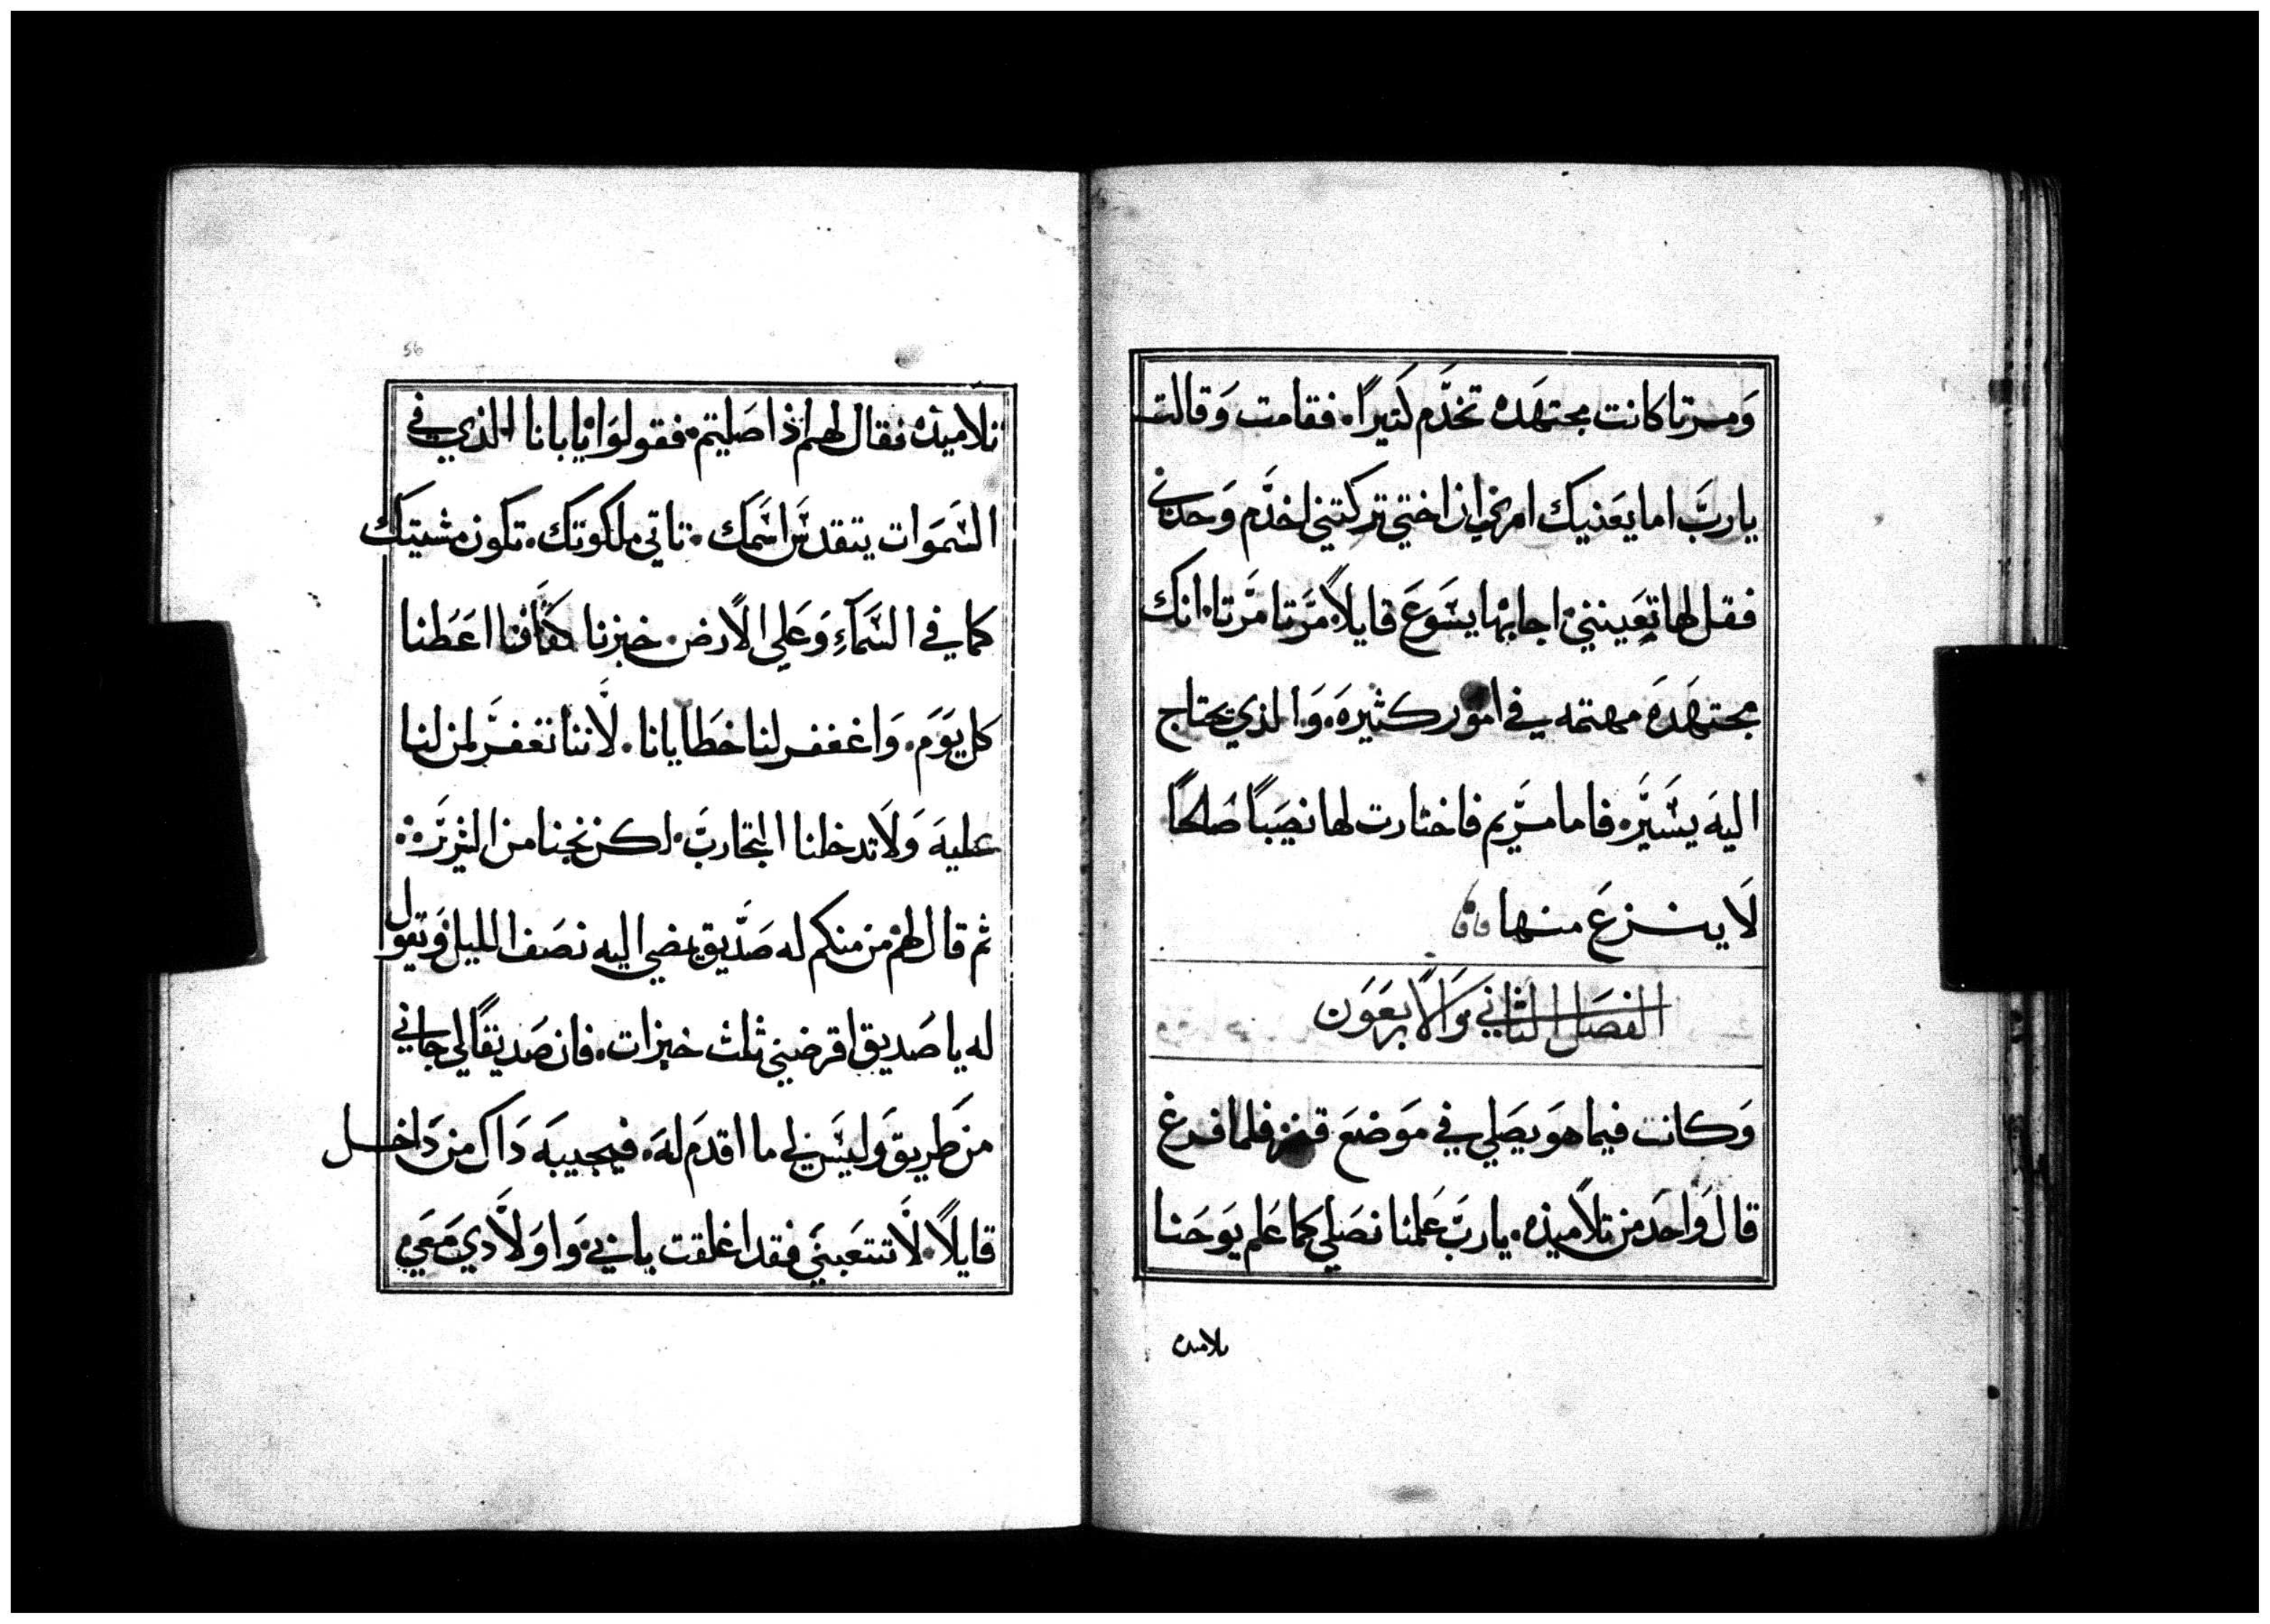 وَمرتا كانت مجتهَده تخدَّم كَتيرًا. فقامت وَقالت
يا ربَّ اما يعَنيك امري ان اختي تركتني اخدَّم وَحدي
فقل لها تعَينني. اجابها يسَّوعَ قايلاً. مَّرتا مَّرتا. انك
مجتهَدَه مهتمه في امَور كثيرهَ. وَالذي يحتاج
اليهَ يسَّيَّر. فاما مرَّيم فاختارت لها نصَيبًا صَالحًا
لَا ينزعَ منها
الفصَل الثاني وَالاربعَوَن
وَكانت فيما هوَ يصَلي في مَوَضعَ قفر فلما فرغ
قال وَاحدَ من تلاميذه. يا ربَّ عَلمنا نصَلي كما عَلم يوَحَنا
تلاميده
56
تلاميذه فقال لهم اذا صَليتم. فقولوَا يا بانا الذي في
السَّمَوَات يتقدسَّ اسَّمك. تاتي ملكوتك. تكون مشيتك
كما في السَّمآءِ وَعَلي الاَرض. خبزنا كفافنا اعَطنا
كل يوَم. وَاغفر لنا خطَايانا. لاَننا نغفرَّ لمن لنا
عليهَ وَلاَ تدخلنا التجاربَّ. لكن نجنا من الشريَّر.
ثم قال لهم من منكم له صَدَّيق يمضي اليه نصَف الليل وَيقول
له يا صَديق اقرضني ثلث خبزات. فان صَديقًا لي جاني
من طَريق وَليسَّ لي ما اقدمَ لهَ. فيجيبهَ دَاك من دَاخل
قايلاً. لاَ تتعَبني فقد اغلقت بابي. وَاوَلاَدي معَي